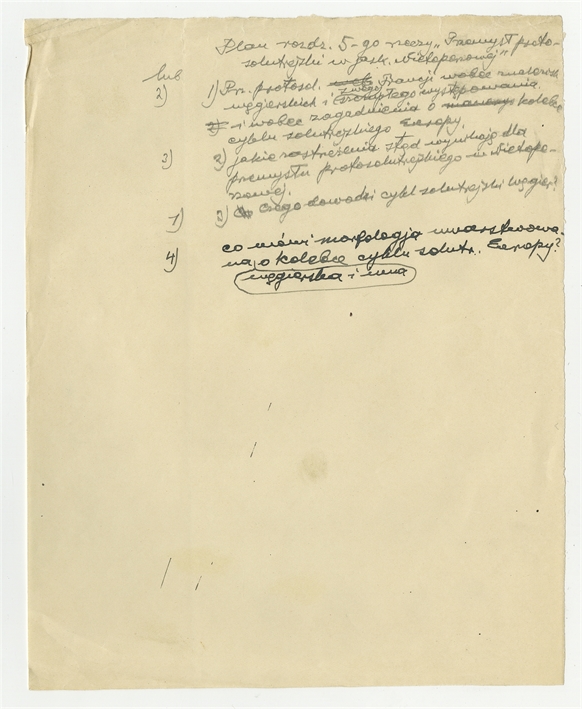 Plan rozdz. 5-go rzeczy „Przemysł proto-
solutrejski w jask. Nietoperzowej"
lub
2) 1) Pr. protosol. Francji wobec
węgierskich i swego występowania
i wobec zagadnienia o kolebce
cyklu solutrejskiego Europy.
3) 2) jakie zastrzeżenia stąd wynikają dla
przemysłu protosolutrejskiego w Nietope-
rzowej.
1) 3) Czego dowodzi cykl solutrejski Węgier?
4) co mówi morfologja uwarstwowa-
na o kolebce cyklu solutr. Europy?
węgierska i inna